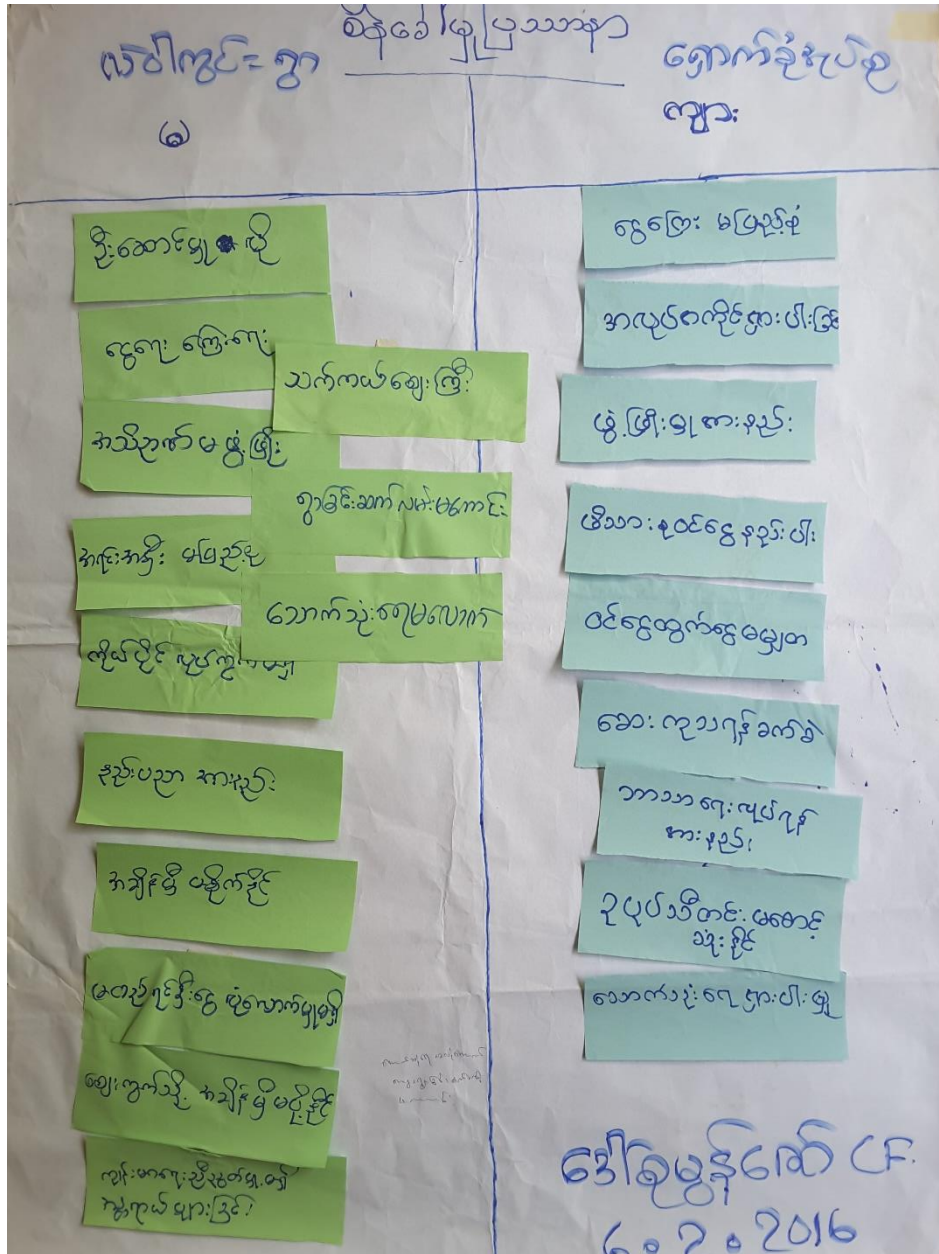 စိန်ခေါ်မှုပြဿနာ
ကျား
ဦးဆောင်မှု လို
ငွေရေး ကြေးရေး
သက်ကယ်ဈေးကြီး
အသိဉာဏ် မဖွံ့ဖြိုး
ရွာချင်းဆက်လမ်းမကောင်း
အရင်းအနှီး မပြည့်စုံ
သောက်သုံးရေမလောက်
ကိုယ်ပိုင်
နည်းပညာ အားနည်း
အချိန်မှီ မစိုက်နိုင်
မတည်ရင်းနှီးငွေ လုံလောက်မှုမရှိ
ဈေးကွက်သို့ အချိန်မှီ မပို့နိုင်
ကျန်းမာရေး
ငွေကြေး မပြည့်စုံ
အလုပ်အကိုင်ရှားပါးခြင်း
ဖွံ့ဖြိုးမှုအားနည်း
မိသားစုဝင်ငွေနည်းပါး
ဝင်ငွေထွက်ငွေမမျှတ
ဆေးကုသရန်ခက်ခဲ
ဘာသာရေးလုပ်ရန်
အားနည်း
ဥပုပ်သီတင်းမစောင့်
သုံးနိုင်
သောက်သုံးရေရှားပါးမှု
ဒေါ်ခြူမွန်ဇော် CF
6.2.2016